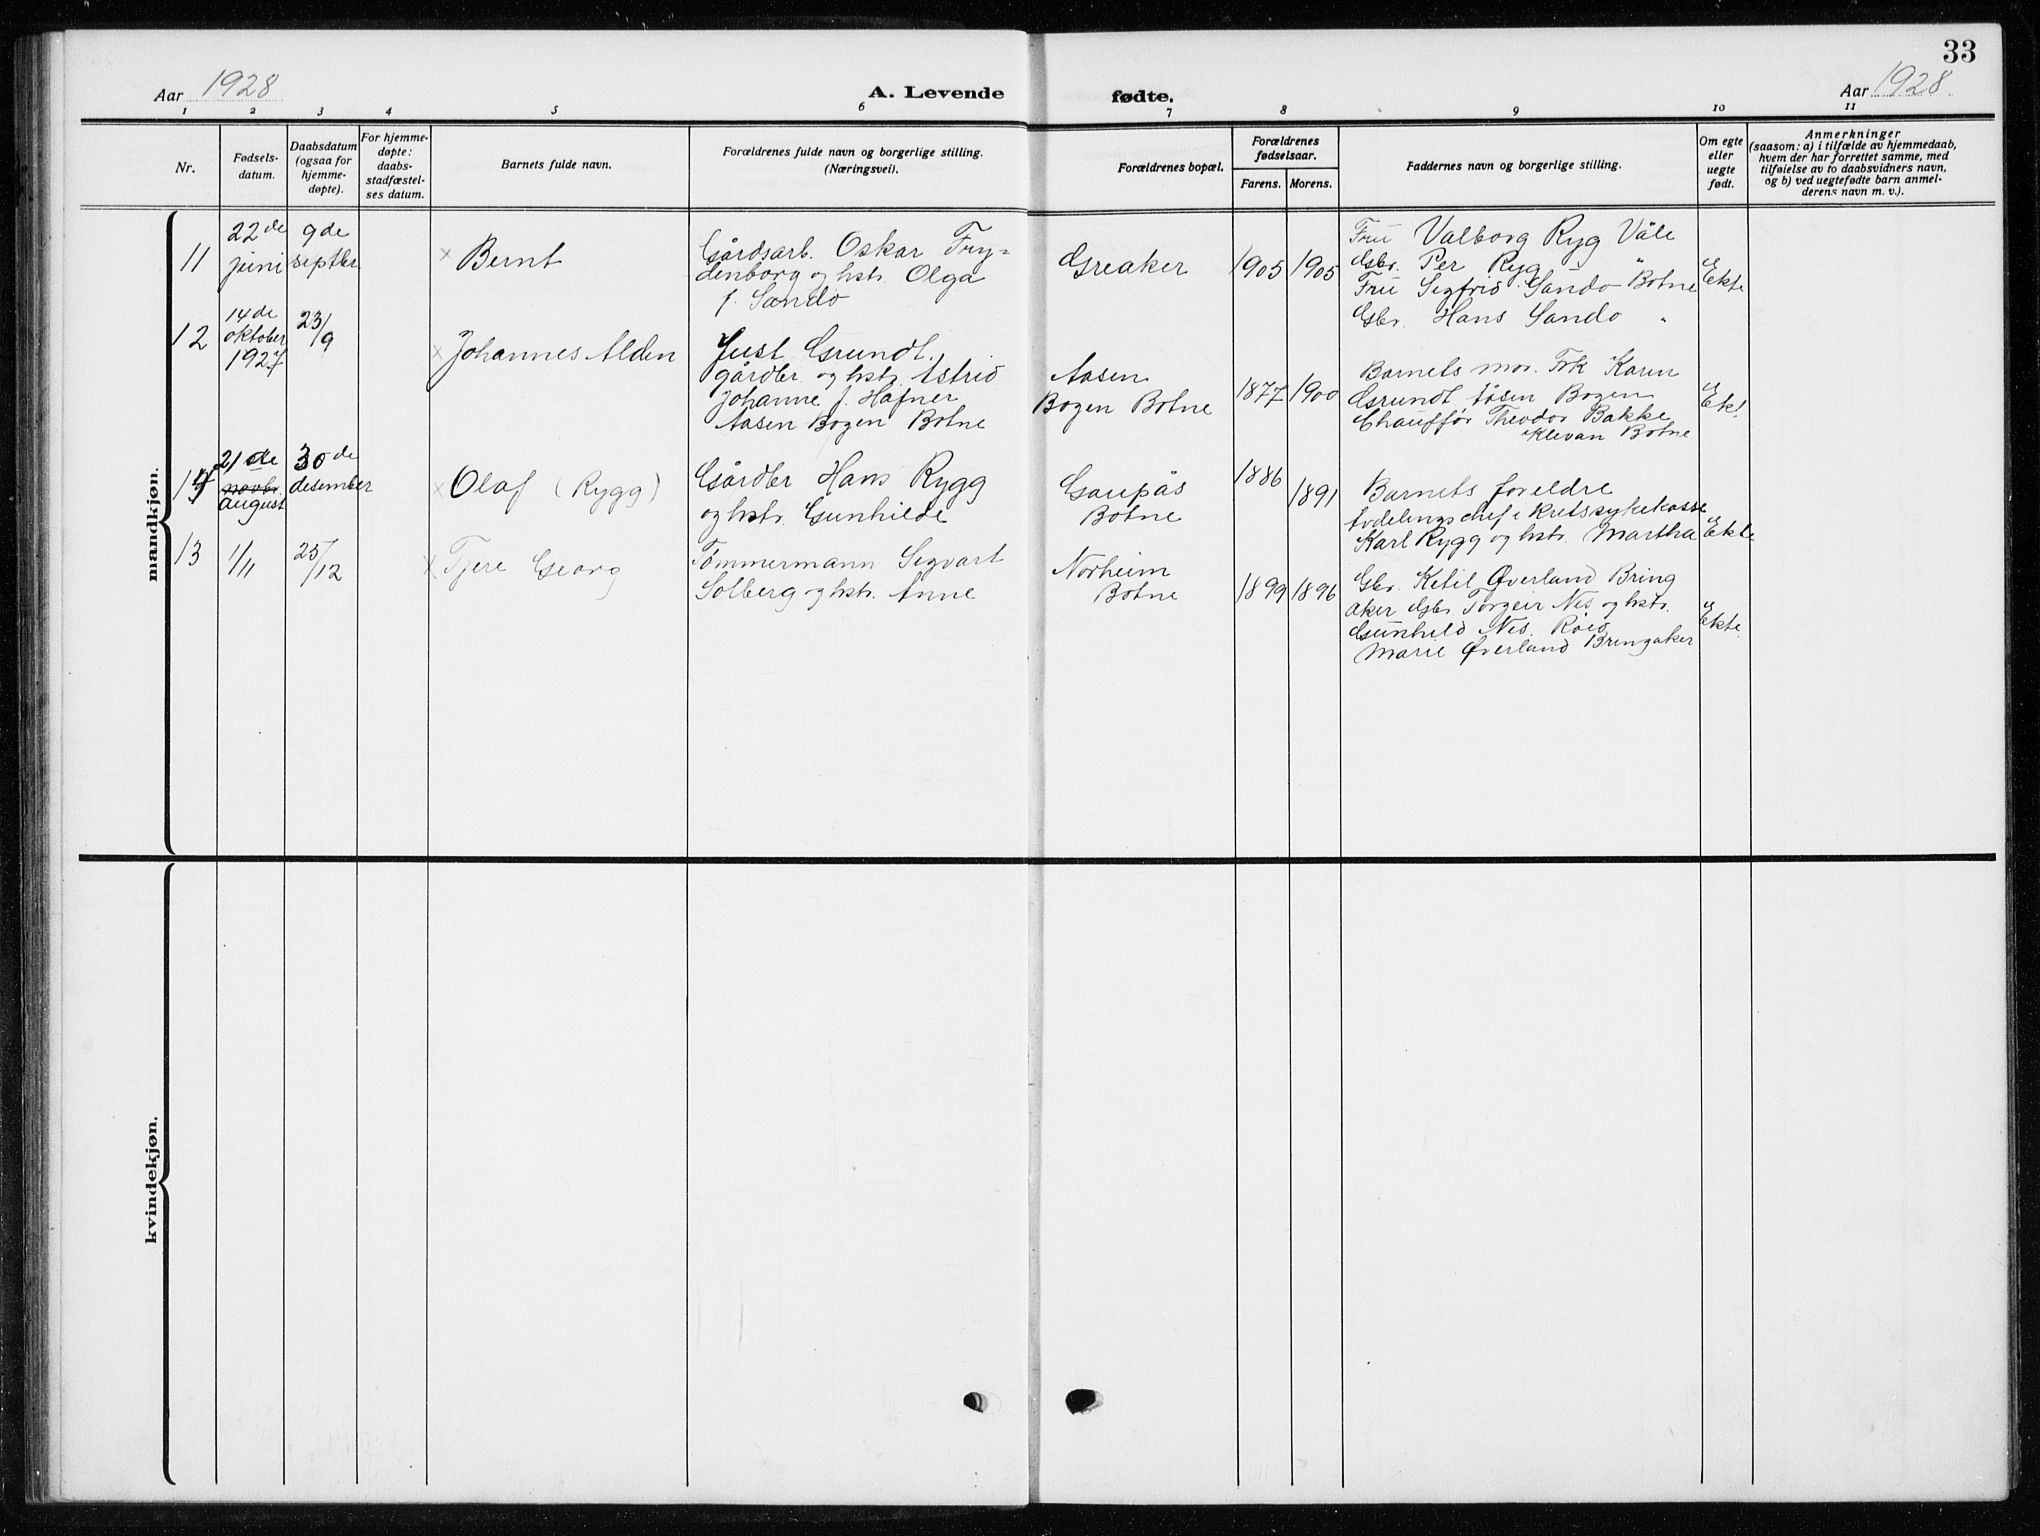 33
Aar 1928
A. Levende fødte.
Aar 1928.
1 2 3 4 5 6 7 8 9 10 11
Nr.
Fødsels-
datum.
Daabsdatum
(ogsaa for
hjemme-
døpte).
For hjemme-
døpte:
daabs-
stadfæstel-
ses datum.
Barnets fulde navn.
Forældrenes fulde navn og borgerlige stilling.
(Næringsvei).
Forældrenes bopæl.
Forældrenes
fødselsaar.
Farens. Morens.
Faddernes navn og borgerlige stilling.
Om egte
eller
uegte
født.
Anmerkninger
(saasom: a) i tilfælde av hjemmedaab,
hvem der har forrettet samme, med
tilføielse av to daabsvidners navn,
og b) ved uegtefødte barn anmel-
derens navn m. v.).
mandkjøn.
11
22de
juni
9de
septbr
× Bernt
Gårdsarb. Oskar Fry-
denborg og hstr. Olga
f. Sando
Greaker
1905 1905
Fru Valborg Ryg Våle
Gbr. Per Ryg "
Fru Sigfrid Sando Botne
Gbr. Hans Sando "
Ekte
12
14de
oktober
1927
23/9
× Johannes Alden
Just Grundt,
gårdbr og hstr. Astrid
Johanne f. Hafner
Aasen Bogen Botne
Aasen
Bogen Botne
1877 1900
Barnets mor. Frk Karin
Grundt Åsen Bogen
Chauffør Theodor Bakke
Klevan Botne
Ekt.
14
21de
novbr.
august
30de
desember
× Olaf (Rygg)
Gårdbr Hans Rygg
og hstr. Gunhilde
Gaupås
Botne
1886
1891
Barnets foreldre
Avdelingschef i Kretssykekasse
Karl Rygg og hstr. Martha
Ekte
13
1/11
25/12
× Tjere Georg
Tømmermann Sigvart
Solberg og hstr. Anne
Norheim
Botne
1899 1896
Gbr. Ketil Øverland Bring
aker Gbr. Torgeir Nes og hstr.
Gunhild Nes. Roid
Marie Øverland Bringaker
Ekte.
kvindekjøn.